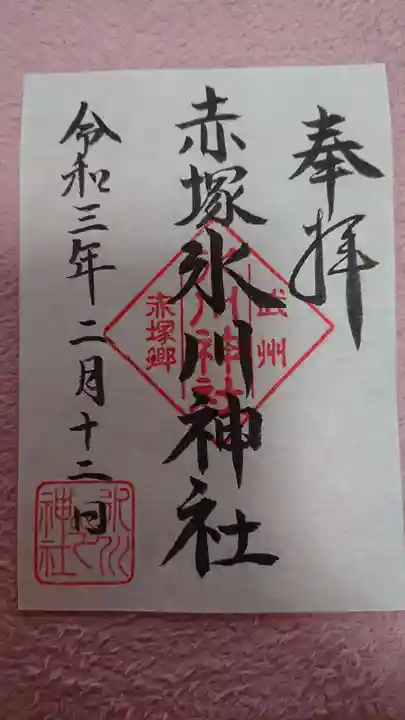 奉拝
赤塚氷川神社
武州
氷川神社
赤塚郷
令和三年二月十二日
氷川
神社